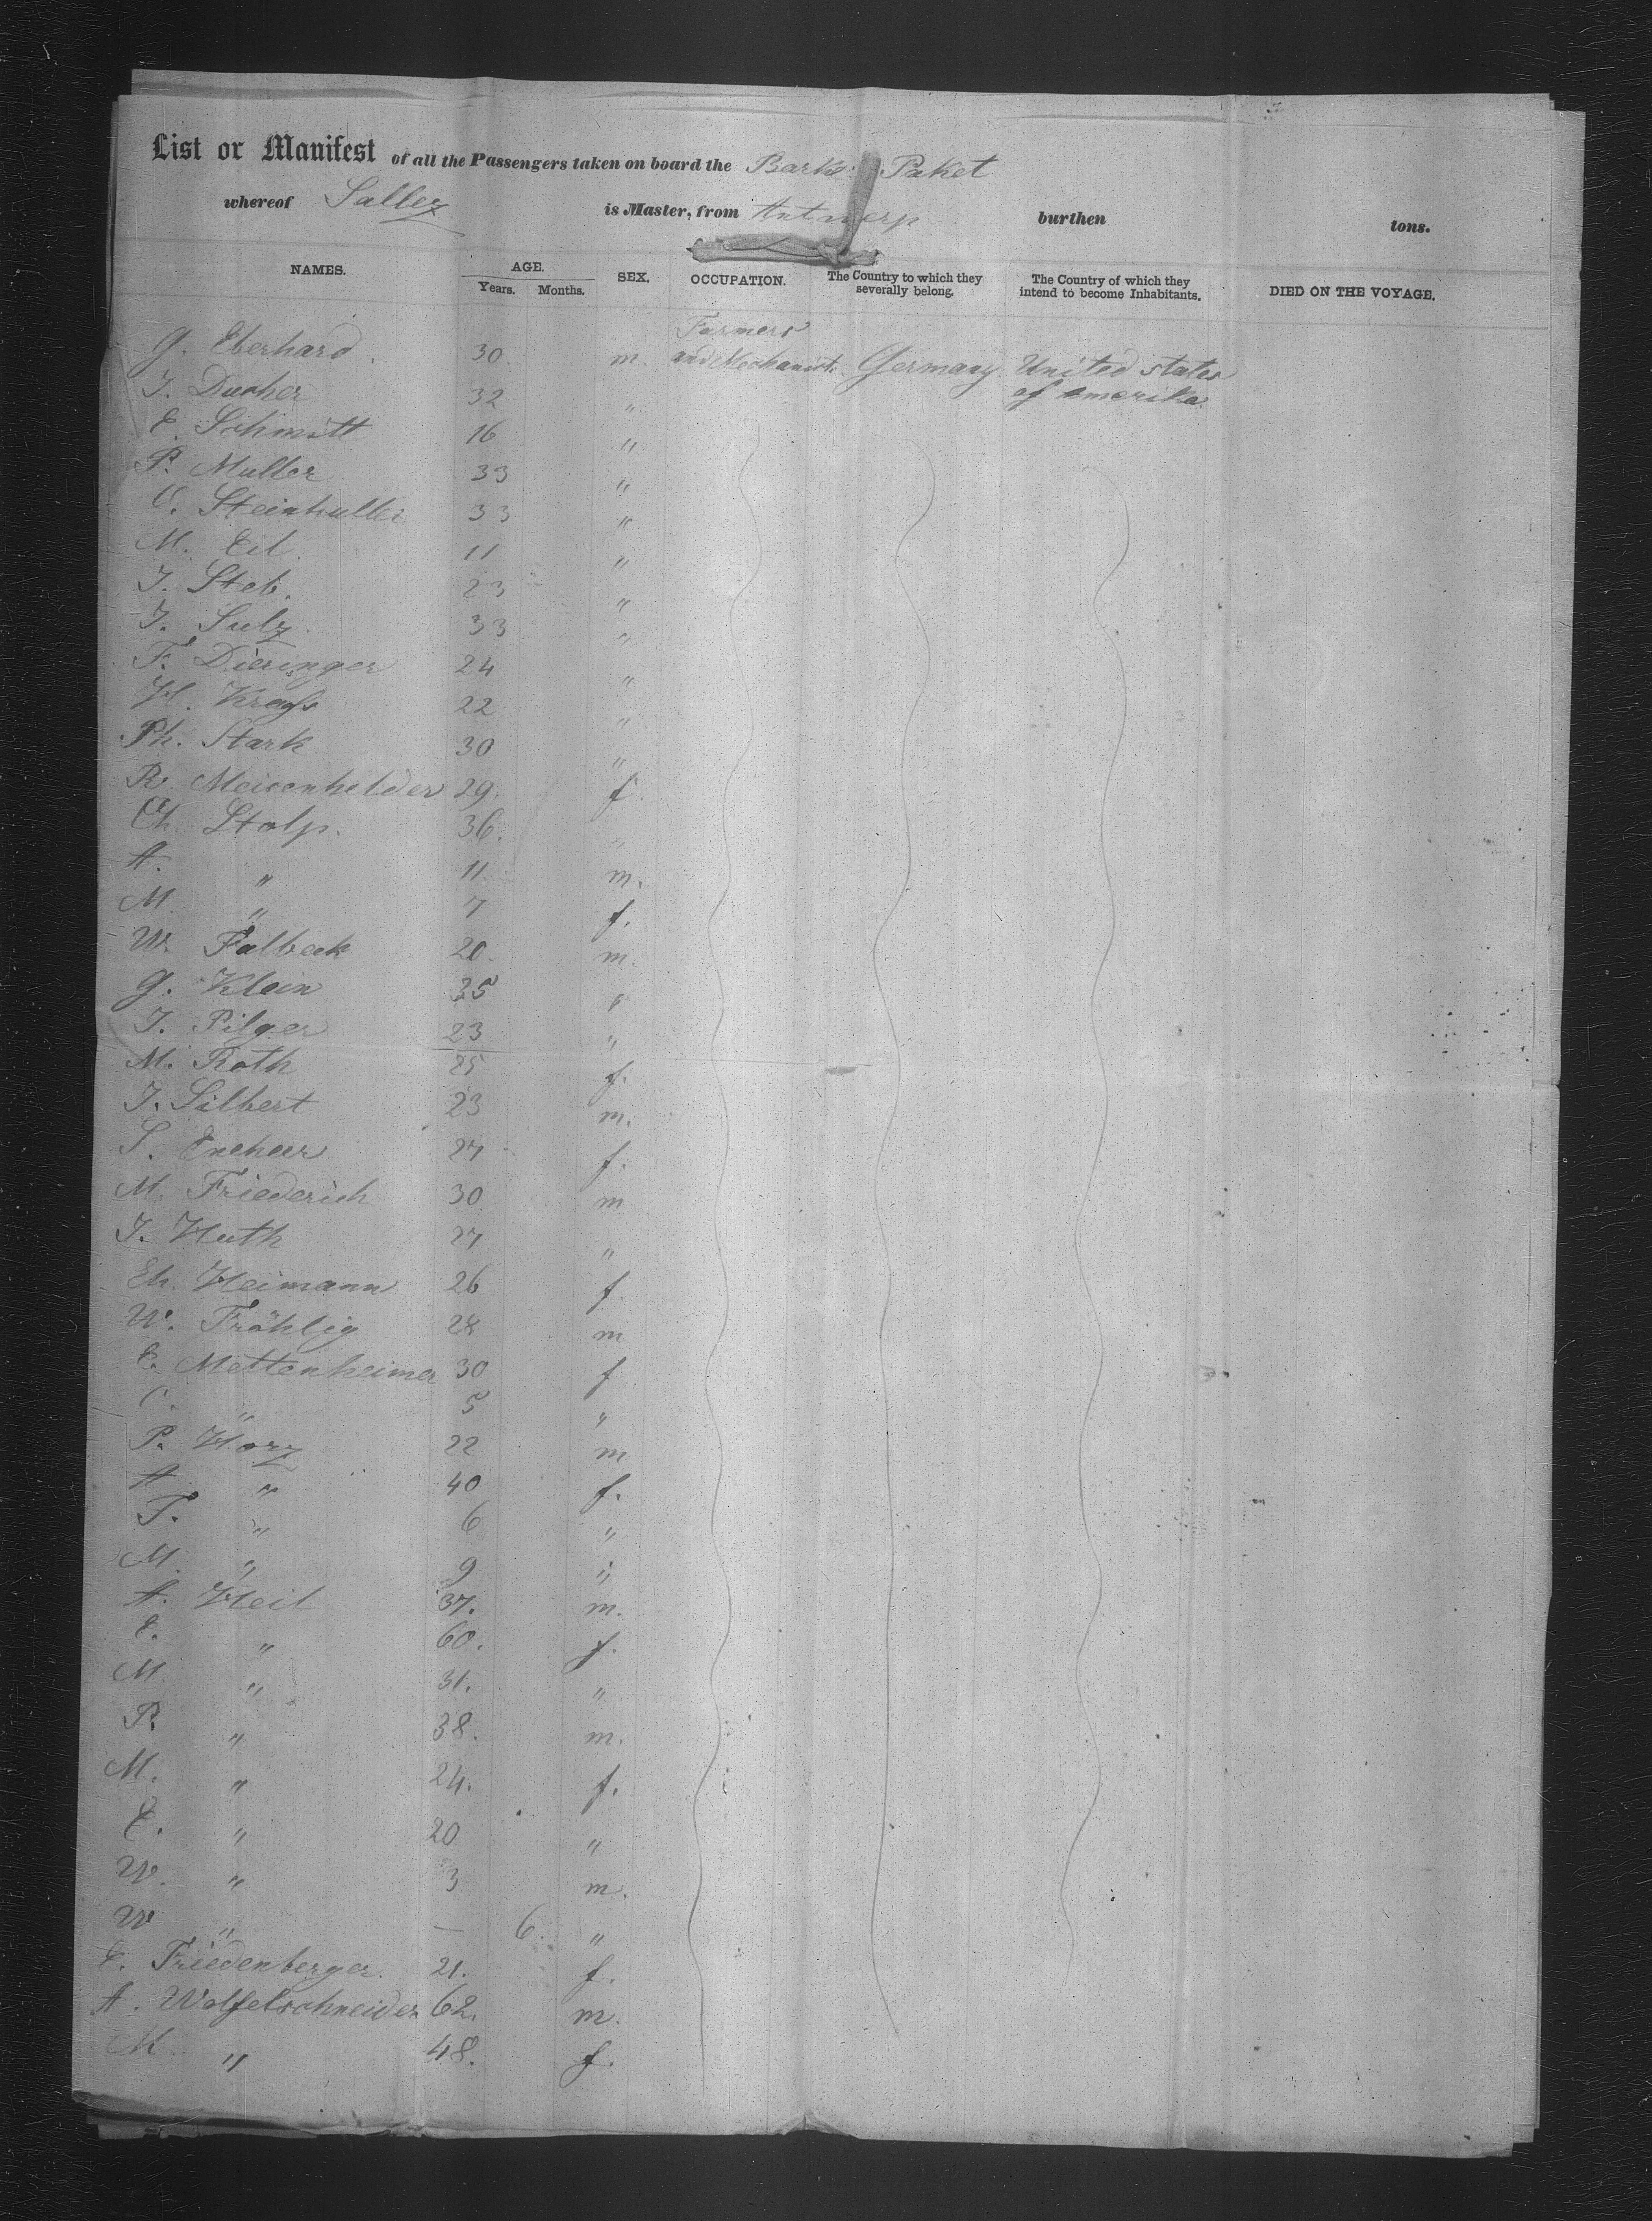 List or Manifest of all the Passengers taken on board the Barke Paket
whereof Sallez is Master, from Antwerp burthen tons.
NAMES. AGE. SEX. OCCUPATION. The Country to which they severally belong. The Country of which they intend to become Inhabitants. DIED ON THE VOYAGE.
Years. Months.
Farmers
G. Eberhard. 30. m. and Mechanists. Germany. United states
J. Ducher 32 " of Amerika.
E. Schmitt 16 "
P. Muller 33 "
C. Steinhuller 33 "
M. Eil. 11 "
J. Steb. 23 "
J. Sulz. 33 "
F. Dieringer 24 "
H. Krauss 22 "
Ph. Stark 30 "
R. Meisenhelder 29. f.
Ch. Stolp. 36. "
A. " 11. m.
M. " 7 f.
W. Falbeck 20. m.
G. Klein 35 "
J. Pilger 23 "
M. Roth 25 f.
J. Silbert 23 m.
S. 27 f.
M. Friederich 30 m
J. Huth 27 "
El. Heimann 26 f.
W. Fröhlig 28 m
E. Mettenheimer 30 f
C. " 5 "
P. Horz 22 m
A. " 40 f.
F. " 6 "
M. " 9 "
A. Heil 37. m.
E. " 60. f.
M. " 31. "
P. " 38. m.
M. " 24. f.
E. " 20 "
W. " 3 m.
W " — 6. "
E. Friedenberger. 21. f.
A. Wolfelschneider 62. m.
M. " 48. f.